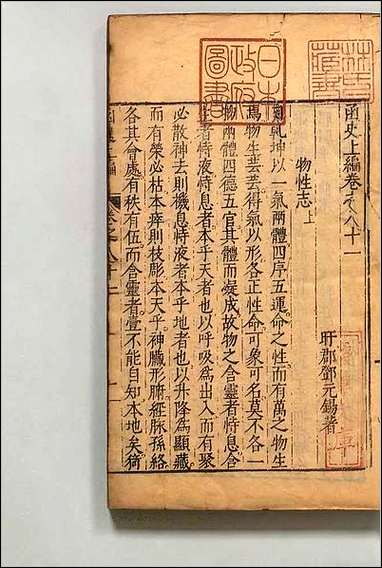 函史上編卷之八十一
盱郡鄧元錫著
物性志上
乾坤以一氣兩體四序五運命之性而有萬之物生
焉物生芸芸得氣以形各正性命可象可名莫不各一
物兩體四德五官其體而凝成故物之含靈者恃息含
生者恃液恃息者本乎天者也以呼吸為出入而有聚
必散神去則機息恃液者本乎地者也以升降為顯藏
而有榮必枯本瘁則枝彫本天乎神臟形腑經脉孫絡
各其會處有秩有伍而含靈者壹不能自知本地矣猗
日本
政府
圖書